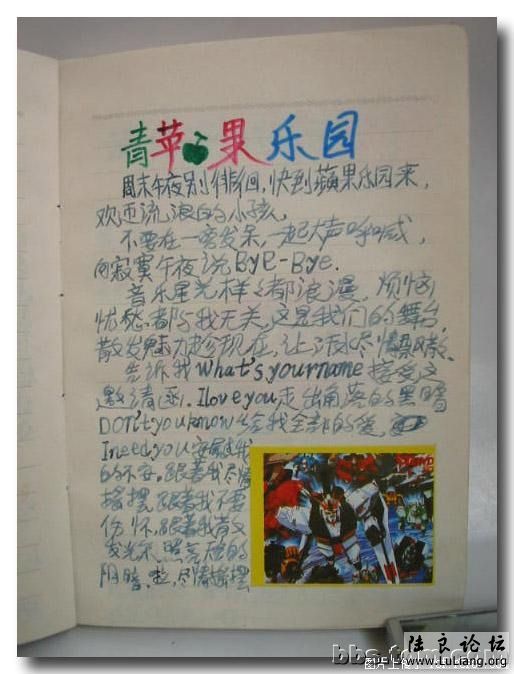 青苹果乐园
周末午夜别徘徊,快到蘋果乐园来,
欢迎流浪的小孩,
不要在一旁发呆,一起大声呼喊,
向寂寞午夜说Bye-Bye.
音乐星光样样都浪漫,烦恼
忧愁都与我无关,这是我们的舞台,
散发魅力趁现在,让汗水尽情
告诉我What's your name接受这
邀请函.I love you走出角落的黑暗
DON't you know给我全部的爱,
I need you安慰我
的不安,跟着我尽情
摇摆跟着我不要
伤怀,跟着我散文
发光 照亮你的
阴暗,啦,尽情摇摆
陆良论坛
www.luLiang.org
bbs.
图片上